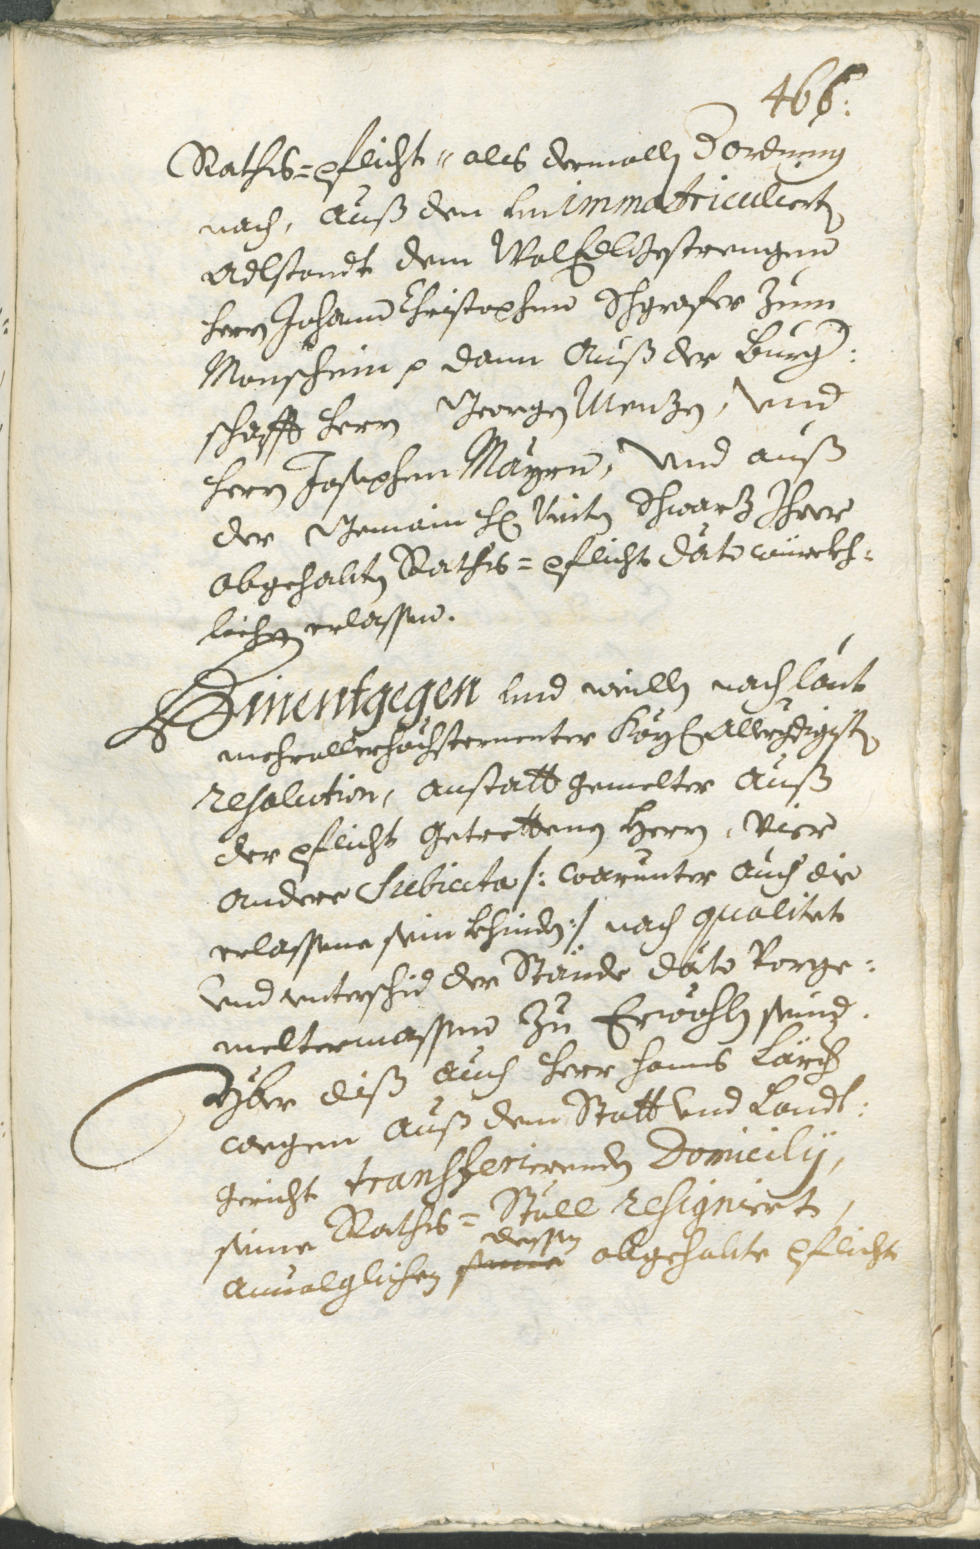 466:
Raths=pflicht" als dermalln Z ordnung
nach, Auß den Immatriculiert
Adlstandt dem WolEdlgestrengen
Herrn Johann Christophen Schgrafer Zum
Monschein p dann Auß der Burg:
schafft Herrn Georgen Menzn, Und
Herrn Josephen Mäyrn, Und auß
der Gemain H Veiten Schwarz Ihrer
obgehabten Raths=pflicht dato würckh:
lichen erlassen.
Hinentgegen Und weilln nach laut
mehrallerhöchsternenter Kay: Allergdigisten
resolution, anstatt gemelter Auß
der pflicht getrettenen Herrn, Vier
andere Subiecta /: warunter auch die
erlassene sein khinden :/ nach qualitet
Und unterschid der Stände dato Vorge:
meltermassen Zu Erwöhln seind.
Yber diß auch Herr Hanns Lärch
wegen auß dem Statt Und Landt:
gericht transferierenden Domicilij,
seine Raths=Stöll resigniert,
dessen
seine obgehabte pflicht